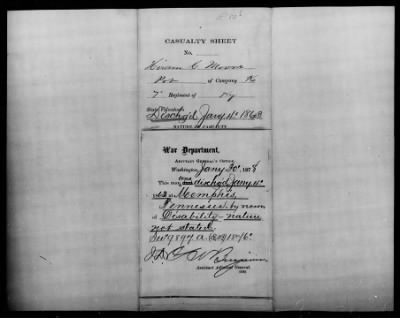 CASUALTY SHEET
No.
Hiram C. Moore
Pvt of Company K
7" Regiment of Ky
Disch'd Jany 11" 1863
NATURE OF CASUALTY
War Department,
ADJUTANT GENERAL'S OFFICE,
Washington, Jany 30", 1878
This man was disch'd Jany 11"
1863 at Memphis,
Tennessee, by reason
of Disability - nature
not stated.
Assistant Adjutant General